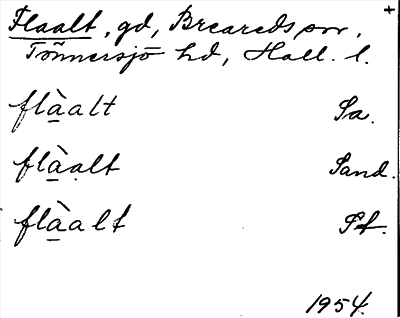 Flaalt, gd, Breareds sn,
Tönnersjö hd, Hall. l.
flàalt Sa.
flàalt Sand.
flàalt St.
1954.